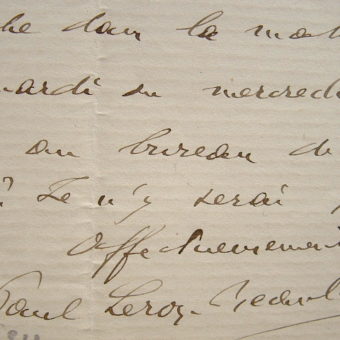 dans la
mardi ou mercredi
au bureau de
? Je n'y serai
Affectueusement
Paul Leroy-Beaul